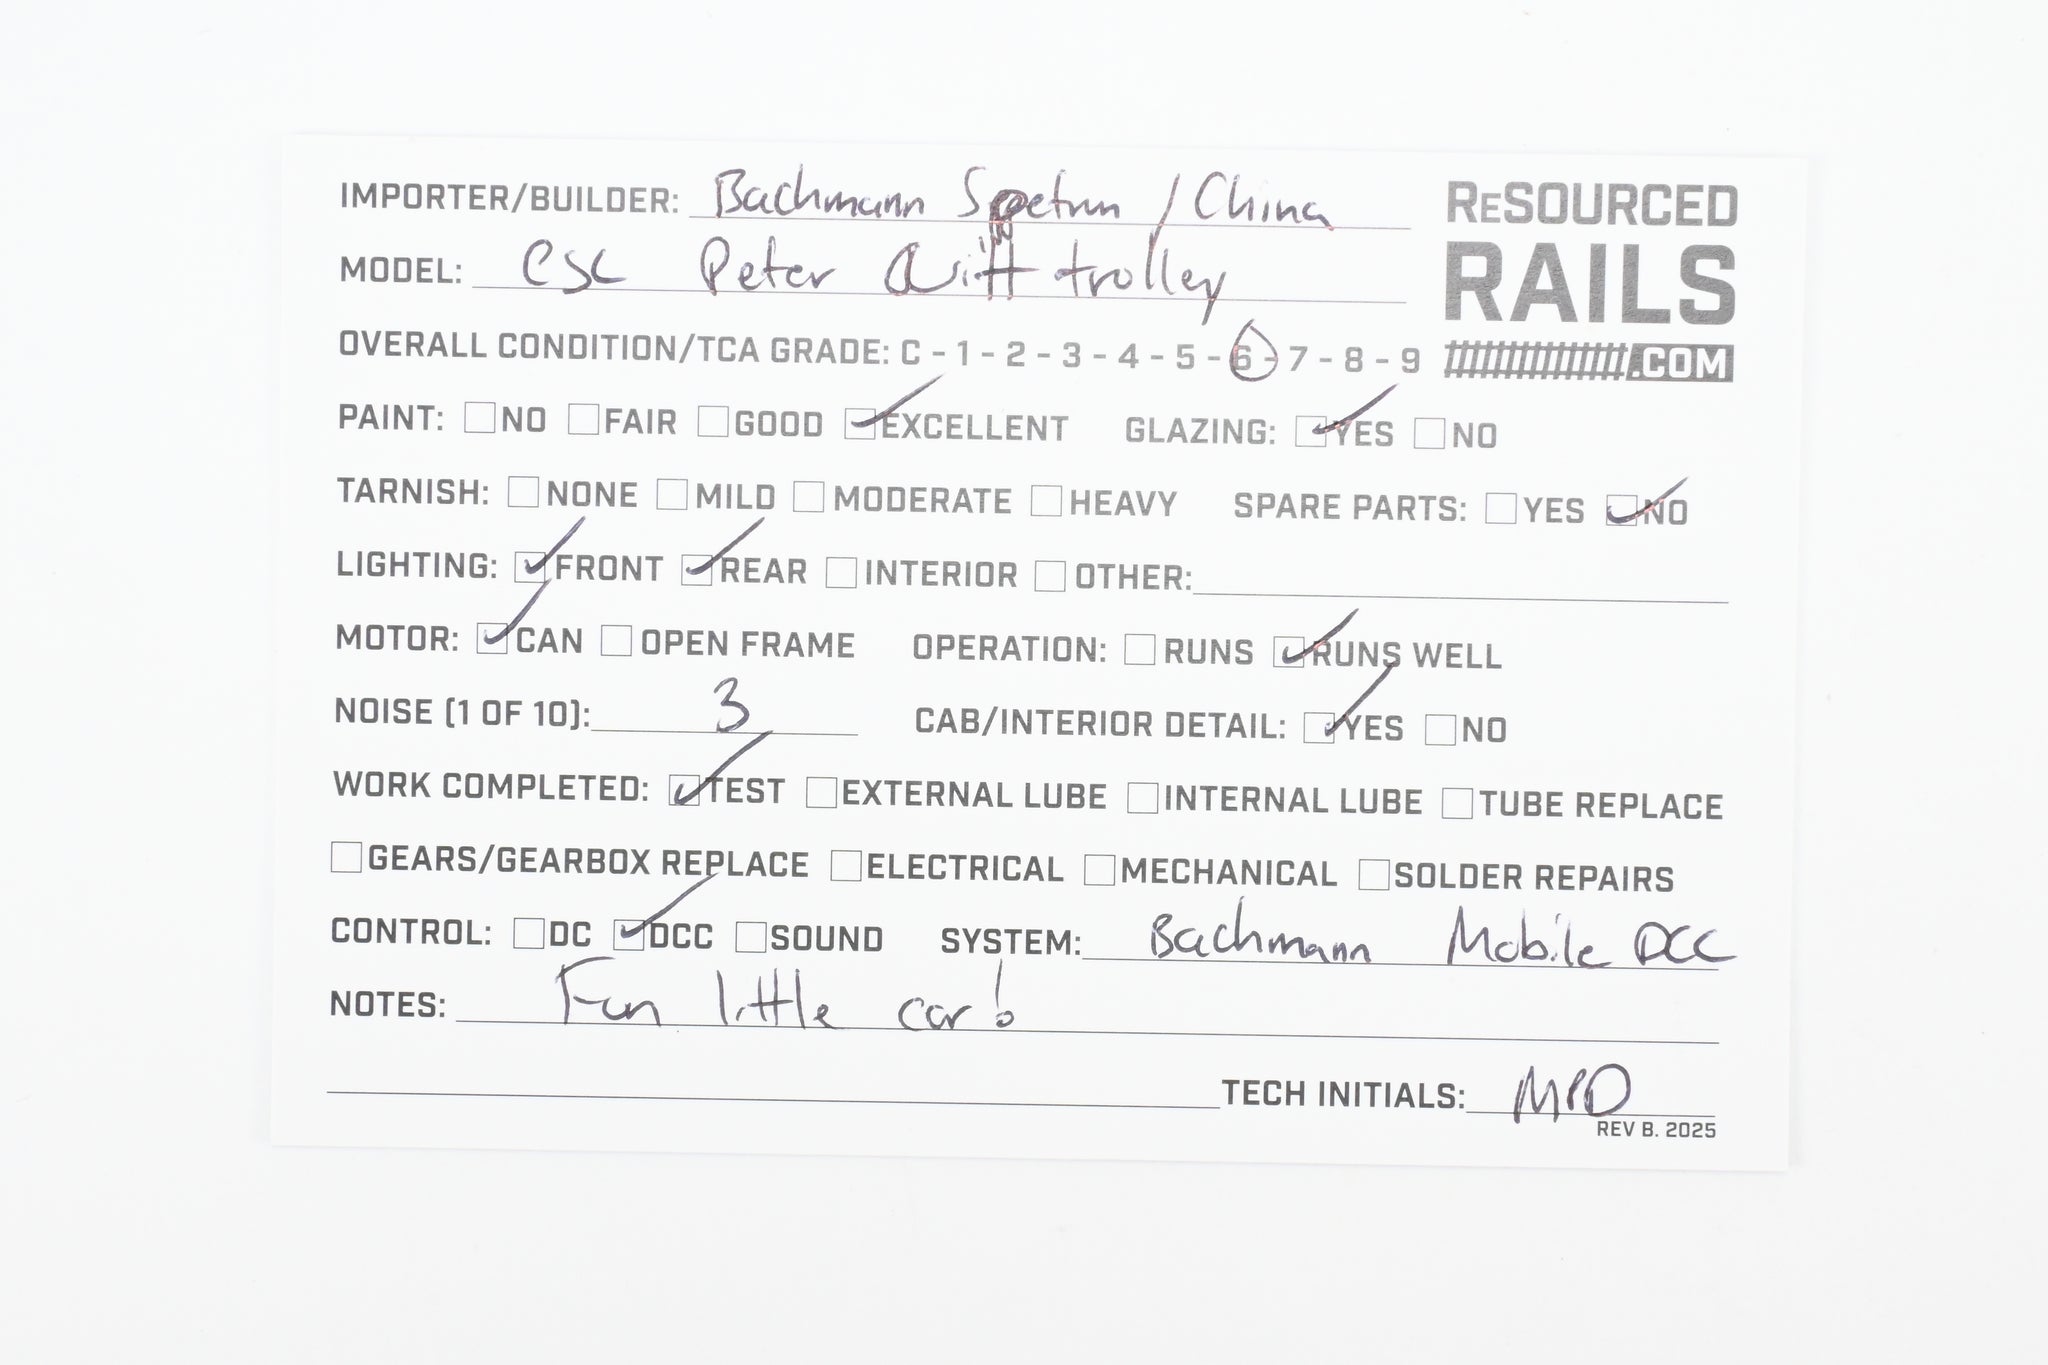 IMPORTER/BUILDER: Bachmann Spetrum / China
MODEL: CSL Peter Witt trolley
ReSOURCED
RAILS
.COM
OVERALL CONDITION/TCA GRADE: C - 1 - 2 - 3 - 4 - 5 - 6 - 7 - 8 - 9
PAINT: NO FAIR GOOD EXCELLENT GLAZING: YES NO
TARNISH: NONE MILD MODERATE HEAVY SPARE PARTS: YES NO
LIGHTING: FRONT REAR INTERIOR OTHER:
MOTOR: CAN OPEN FRAME OPERATION: RUNS RUNS WELL
NOISE (1 OF 10): 3 CAB/INTERIOR DETAIL: YES NO
WORK COMPLETED: TEST EXTERNAL LUBE INTERNAL LUBE TUBE REPLACE
GEARS/GEARBOX REPLACE ELECTRICAL MECHANICAL SOLDER REPAIRS
CONTROL: DC DCC SOUND SYSTEM: Bachmann Mobile DCC
NOTES: Fun little car!
TECH INITIALS: MPD
REV B. 2025